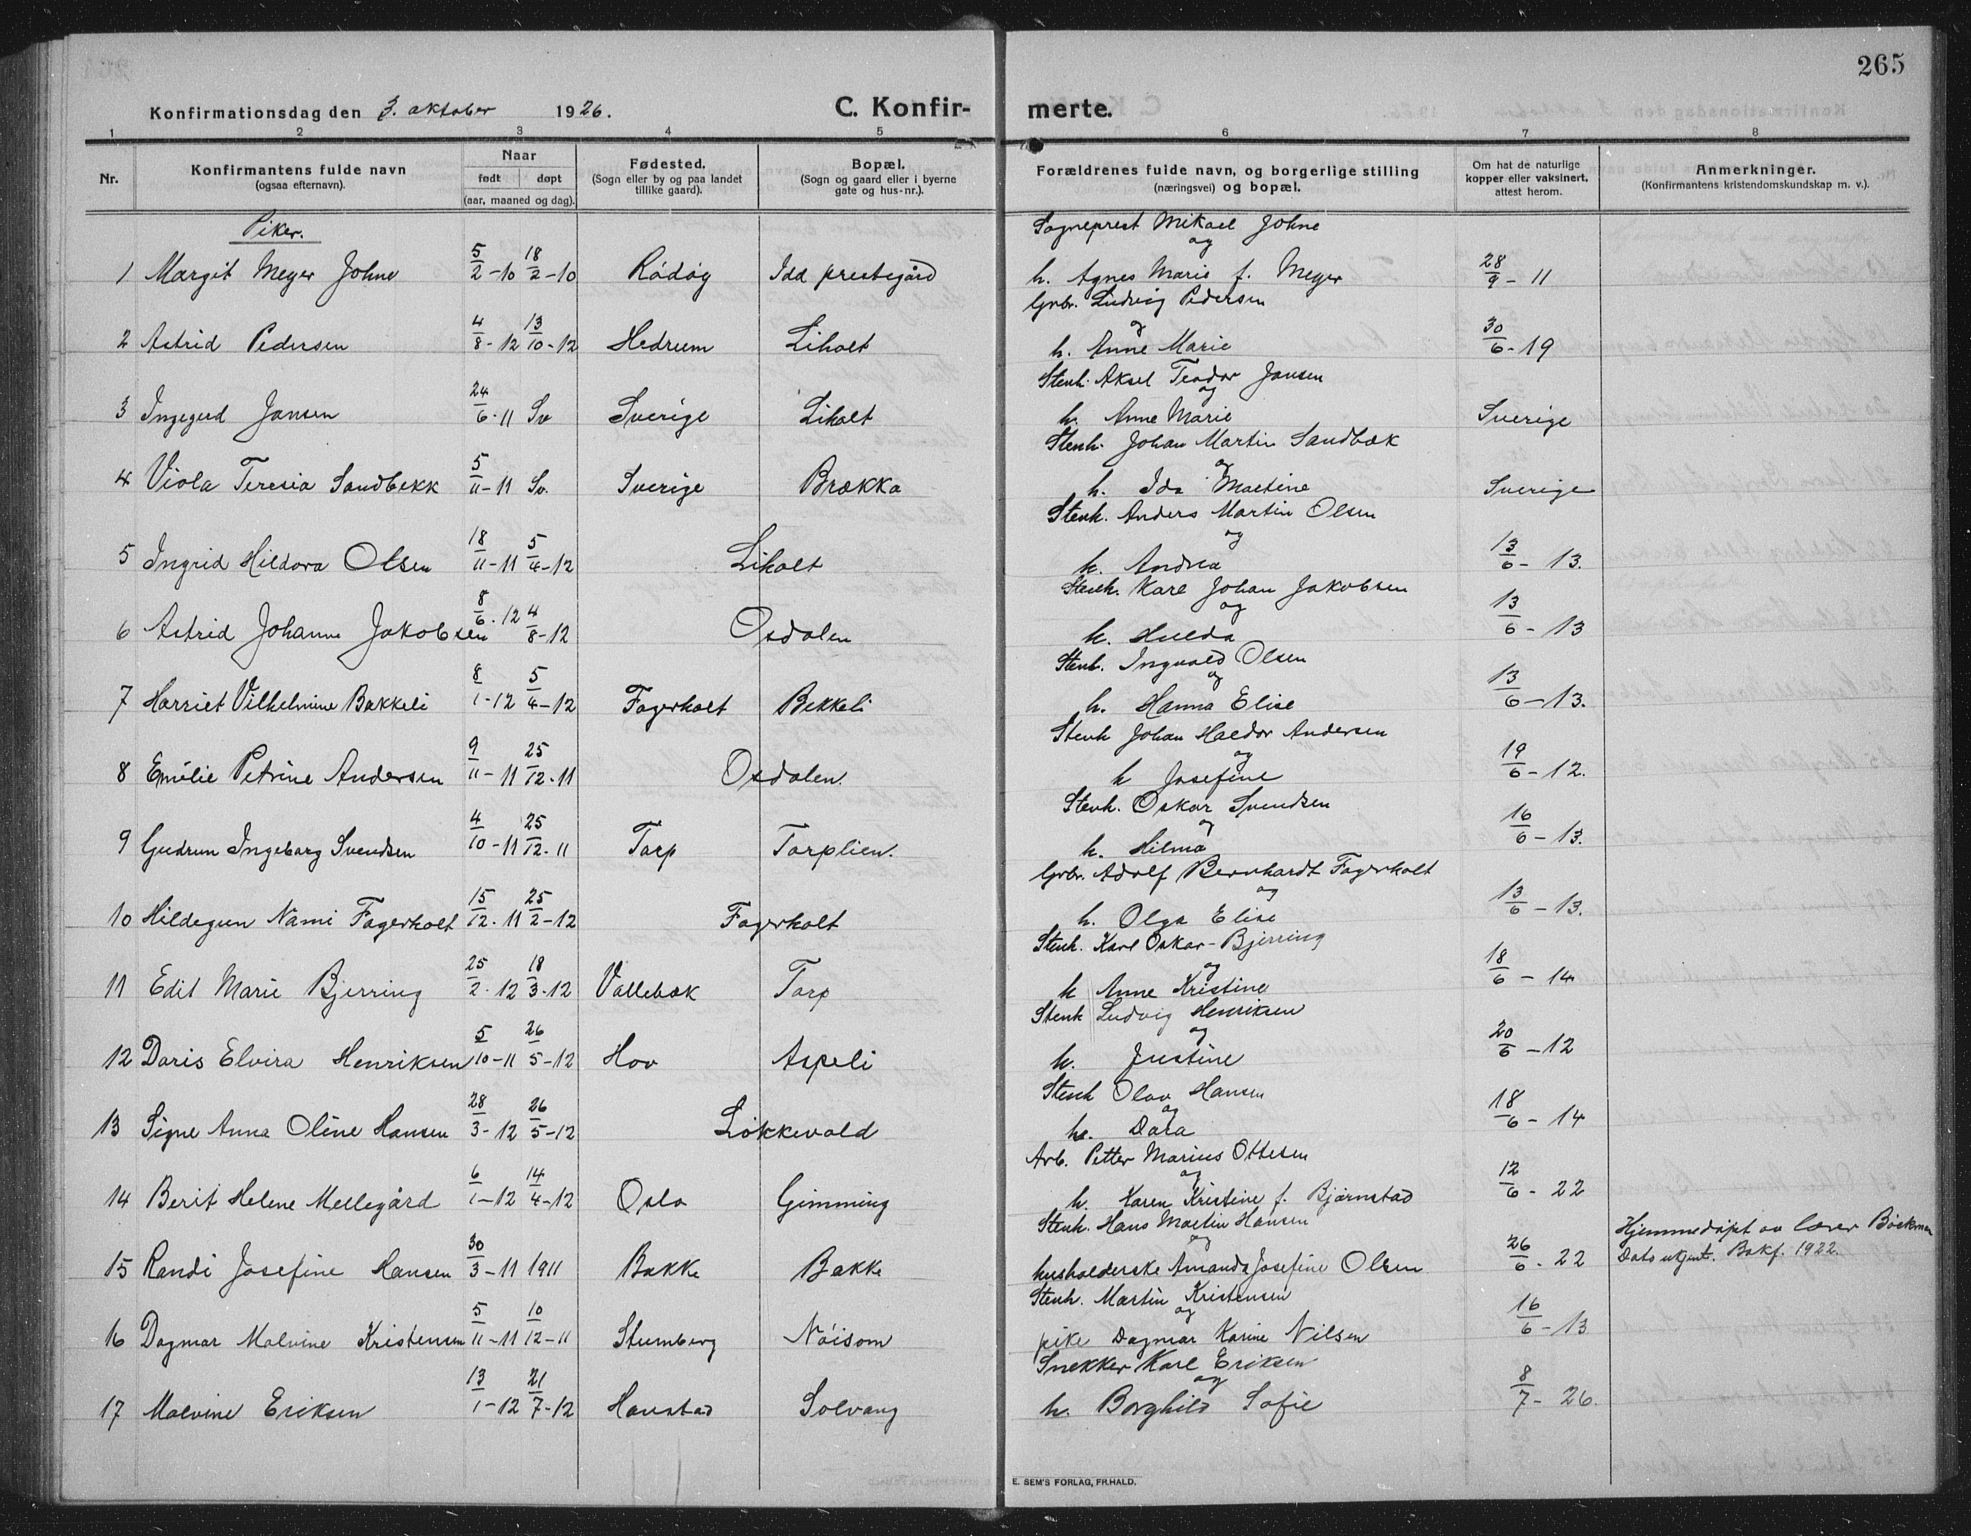 265
Konfirmationsdag den 3. oktober 1926. C. Konfir- merte.
1 2 3 4 5 6 7 8
Nr. Konfirmantens fulde navn (ogsaa efternavn). Naar født døpt (aar, maaned og dag). Fødested. (Sogn eller by og paa landet tillike gaard). Bopæl. (Sogn og gaard eller i byerne gate og hus-nr.). Forældrenes fulde navn, og borgerlige stilling (næringsvei) og bopæl. Om hat de naturlige kopper eller vaksinert, attest herom. Anmerkninger. (Konfirmantens kristendomskundskap m. v.).
Piker.
Sogneprest Mikael Johne
og
1 Margit Meyer Johne 5/2-10 18/2-10 Rödöy Idd prestegård h. Agnes Marie f. Meyer 28/9-11
Grbr. Ludvig Pedersen
og
2 Astrid Pedersen 4/8-12 13/10-12 Hedrum Liholt h. Anne Marie 30/6-19
Stenh. Aksel Teodor Jansen
og
3 Ingegerd Jansen 24/6-11 Sv Sverige Liholt h. Anne Marie Sverige
Stenh. Johan Martin Sandbæk
og
4 Viola Teresia Sandbekk 5/11-11 Sv. Sverige Brække h. Ida Martine Sverige
Stenh. Anders Martin Olsen
og
5 Ingrid Hildora Olsen 18/11-11 5/4-12 Liholt h. Andrea 13/6-13.
Stenh. Karl Johan Jakobsen
og
6 Astrid Johanne Jakobsen 8/6-12 4/8-12 Osdalen h. Hulda 13/6-13
Stenh. Ingvald Olsen
og
7 Harriet Vilhelmine Bakkeli 8/1-12 5/4-12 Fagerholt Bekkeli h. Hanna Elise 13/6-13.
Stenh Johan Haldor Andersen
og
8 Emilie Petrine Andersen 9/11-11 25/12-11 Osdalen. h Josefine 19/6-12.
Stenh. Oskar Svendsen
og
9 Gudrun Ingeborg Svendsen 4/10-11 25/12-11 Torp Torplien. h. Hilma 16/6-13.
Grbr. Adolf Bernhardt Fagerholt
og
10 Hildegun Nåmi Fagerholt 15/12-11 25/2-12 Fagerholt h. Olga Elise 13/6-13.
Stenh. Karl Oskar Bjerring
og
11 Edit Marie Bjerring 25/2-12 18/3-12 Vallebæk Torp h Anne Kristine 18/6-14
Stenh Ludvig Henriksen
og
12 Doris Elvira Henriksen 5/10-11 26/5-12 Hov Aspeli h. Justine 20/6-12
Stenh Olav Hansen
og
13 Signe Anna Oline Hansen 28/3-12 26/5-12 Lökkevold h. Dora 18/6-14
Arb. Petter Marius Ottesen
og
14 Berit Helene Mellegård 6/1-12 14/4-12 Oslo Gimming h. Karen Kristine f. Bjørnstad 12/6-22
Stenh. Hans Martin Hansen
og
Hjemmedøpt av lærer Böckman
15 Randi Josefine Hansen 30/3-11 1911 Bakke Bakke husholderske Amanda Josefine Olsen 26/6-22 Dato ukjent. Bekf. 1922.
Stenh. Martin Kristensen
og
16 Dagmar Malvine Kristensen 5/11-11 10/12-11 Stumberg Nöisom pike Dagmar Karine Nilsen 16/6-13
Snekker Karl Eriksen
og
17 Malvine Eriksen 13/1-12 21/7-12 Haustad Solvang h. Borghild Sofie 8/7-26.
E. SEM'S FORLAG, FR.HALD.